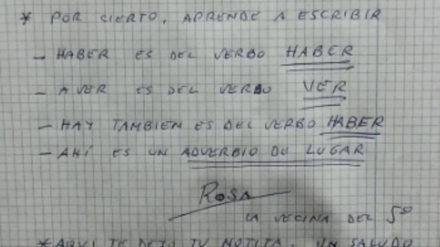 * POR CIERTO, APRENDE A ESCRIBIR
- HABER ES DEL VERBO HABER
- A VER ES DEL VERBO VER
- HAY TAMBIEN ES DEL VERBO HABER
- AHÍ ES UN ADVERBIO DE LUGAR
ROSA
LA VECINA DEL 5º
* AQUI TE DEJO TU NOTITA. UN SALUDO